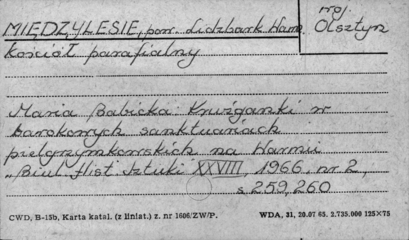 MIĘDZYLESIE, pow. Lidzbark Warm.
woj. Olsztyn
kościół parafialny
Maria Babicka: Krużganki w
barokowych sanktuariach
pielgrzymkowskich na Warmii
"Biul. Hist. Sztuki XXVIII, 1966. nr 2,
s. 259, 260
CWD, B-15b, Karta katal. (z liniat.) z. nr 1606/ZW/P.
WDA, 31, 20.07 65. 2.735.000 125×75